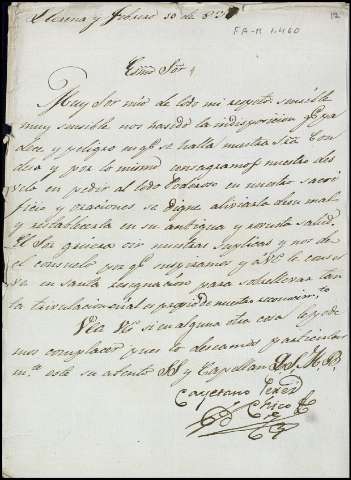 Llerena y Febrero 10 de 83
12
FA-M 1.460
Exmo Sor
Muy Sor mio de todo mi respeto: sensible
muy sensible nos ha sido la indisposicion qe pa
dece y peligro en qe se halla nuestra Sra Con
desa y por lo mismo consagramos nuestro des
velo en pedir al todo Poderoso en nuestros sacri
ficios y oraciones se digne aliviarla de su mal
y restablecerla en su antigua y robusta salud.
El Sor quiera oir nuestras suplicas y nos de
el consuelo por qe suspiramos y a V.E. le conser
ve en santa resignacion para sobrellevar tan
ta tribulacion cual es propio de nuestro
Vea V.E. si en alguna otra cosa le pode
mos complacer pues lo deseamos particular
mte este su atento S.S. y Capellan Q.S.M.B.
Cayetano Perez
Chico